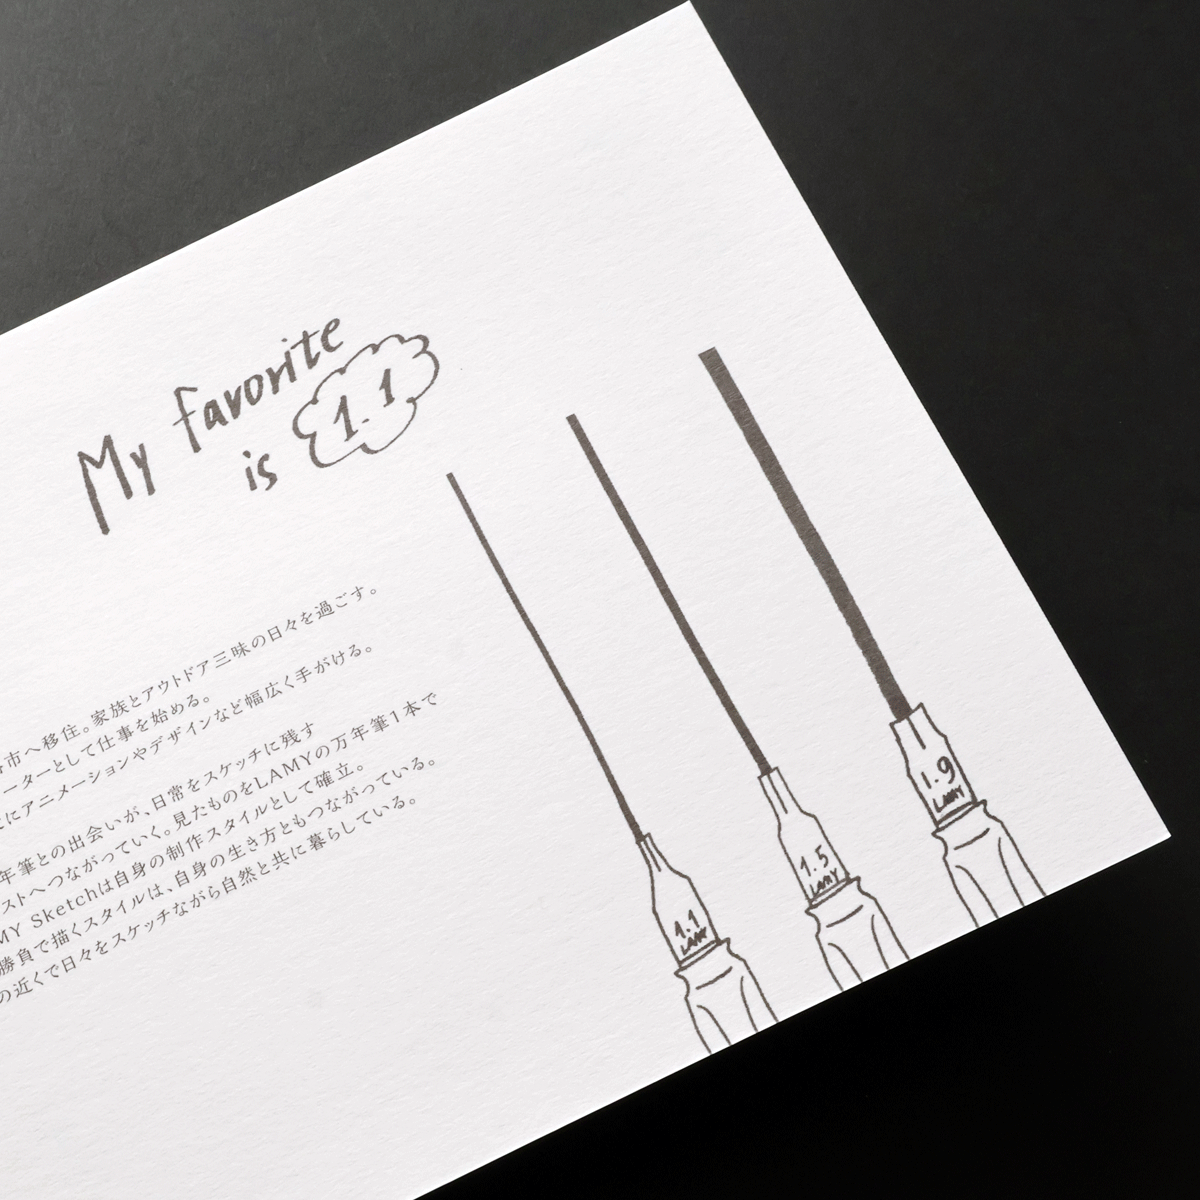 My favorite
is 1.1
市へ移住。家族とアウトドア三昧の日々を過ごす。
ーターとして仕事を始める。
にアニメーションやデザインなど幅広く手がける。
年筆との出会いが、日常をスケッチに残す
ストへつながっていく。見たものをLAMYの万年筆1本で
MY Sketchは自身の制作スタイルとして確立。
勝負で描くスタイルは、自身の生き方ともつながっている。
の近くで日々をスケッチながら自然と共に暮らしている。
1.1
LAMY
1.5
LAMY
1.9
LAMY